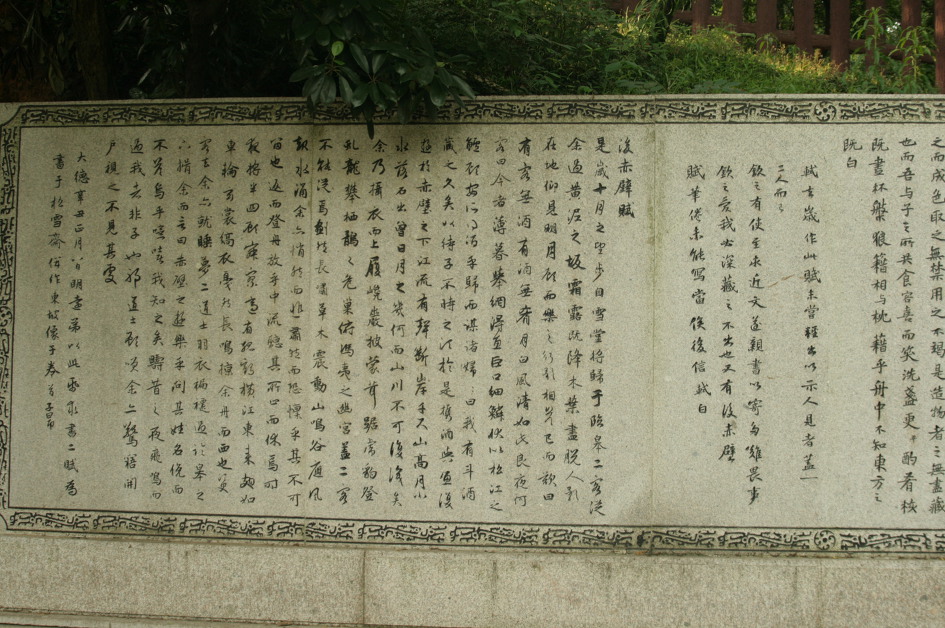 之而成色取之無禁用之不竭是造物者之無盡藏
也而吾与子之所共食客喜而笑洗盞更酌肴核
既盡杯盤狼籍相与枕藉乎舟中不知東方之
既白
軾去歲作此賦未嘗輕出以示人見者蓋一
二人而已
欽之有使至求近文遂親書以寄多難畏事
欽之愛我必深藏之不出也又有後赤壁
賦筆倦未能寫當俟後信軾白
後赤壁賦
是歲十月之望步自雪堂將歸于臨皋二客從
余過黃泥之坂霜露既降木葉盡脫人影
在地仰見明月顧而樂之行歌相答已而歎曰
有客無酒有酒無肴月白風清如此良夜何
客曰今者薄暮舉網得魚巨口細鱗狀似松江之
鱸顧安所得酒乎歸而謀諸婦婦曰我有斗酒
藏之久矣以待子不時之須於是攜酒與魚復
遊於赤壁之下江流有聲斷岸千尺山高月小
水落石出曾日月之幾何而山川不可復識矣
余乃攝衣而上履巉巖披蒙茸踞虎豹登
虬龍攀栖鶻之危巢俯馮夷之幽宮蓋二客
不能從焉劃然長嘯草木震動山鳴谷應風
起水涌余亦悄然而悲肅然而恐凜乎其不可
留也返而登舟放乎中流聽其所止而休焉時
夜將半四顧寂寥適有孤鶴橫江東來翅如
車輪玄裳縞衣戛然長鳴掠余舟而西也須臾
客去余亦就睡夢二道士羽衣翩躚過臨皋之
下揖余而言曰赤壁之遊樂乎問其姓名俛而
不答嗚呼噫嘻我知之矣疇昔之夜飛鳴而
過我者非子也耶道士顧笑余亦驚悟開
戶視之不見其處
大德辛丑正月八日明遠弟以此紙求書二賦為
書于松雪齋併作東坡像于卷首子昂